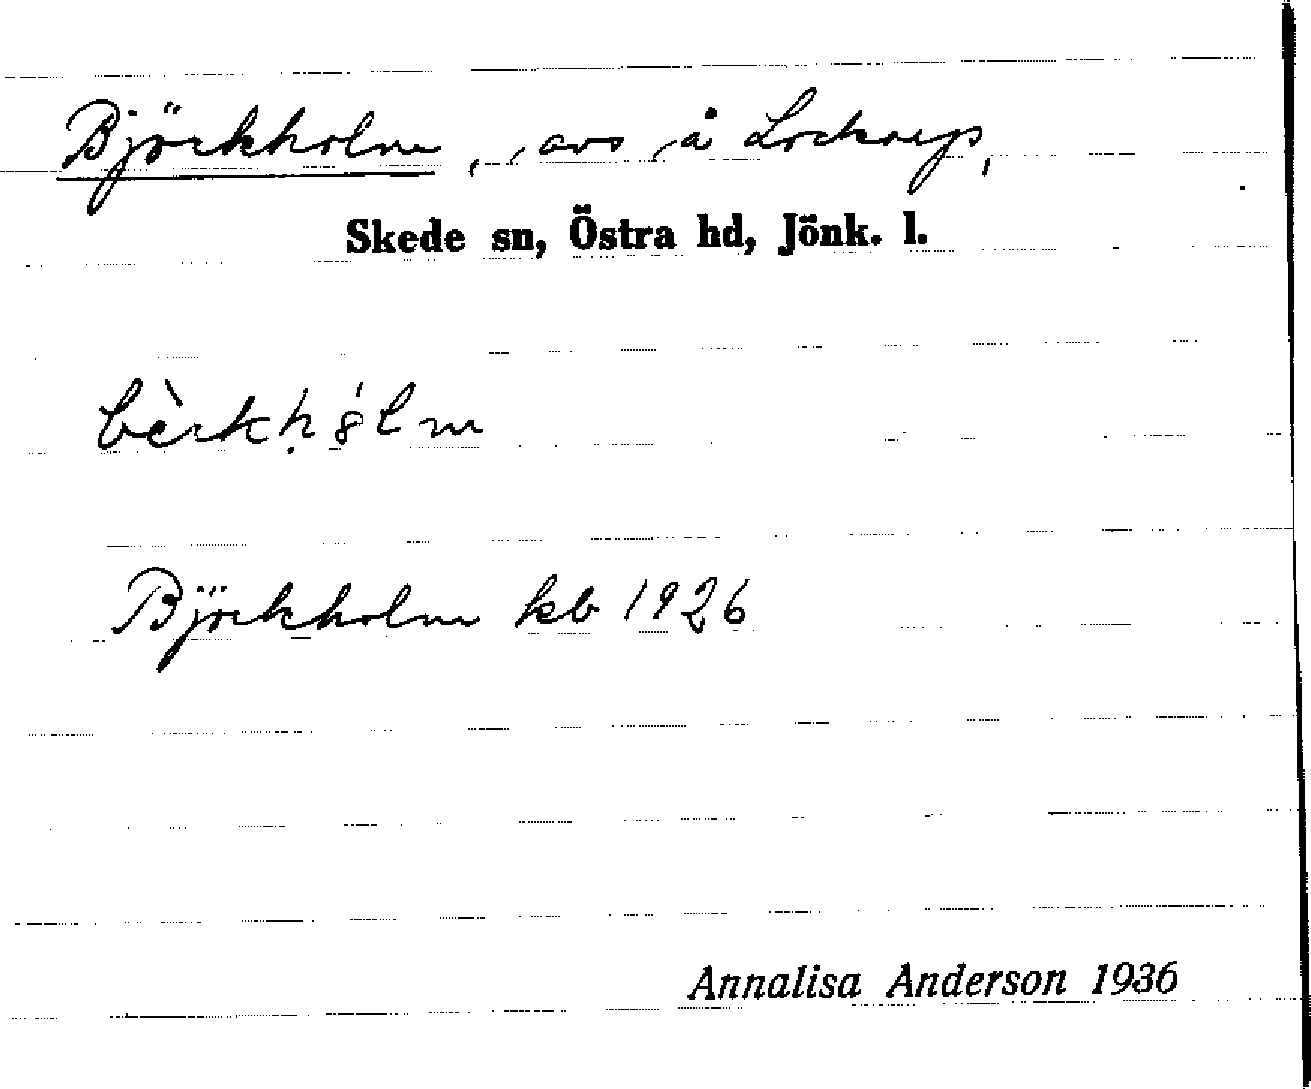 Björkholm, avs å Lockarp,
Skede sn, Östra hd, Jönk. l.
bèrkḥó̤lm
Björkholm kb 1926
Annalisa Anderson 1936